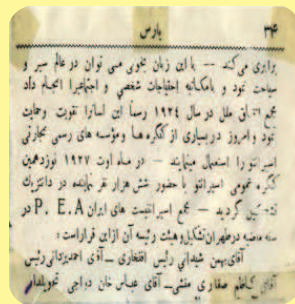 ۳۴۶ پارس
برابری می‌کند — با این زبان بخوبی می توان در عالم سیر و
سیاحت نمود و بامکاتبه احتیاجات شخصی و اجتماعیرا انجام داد
مجمع اتفاق ملل در سال ۱۹۲۴ رسماً این لسانرا تقویت وحمایت
نمود و امروز در بسیاری از کنگره ها و مؤسسه های رسمی تجارتی
اسپرانتو را استعمال مینمایند — در ماه اوت ۱۹۲۷ نوزدهمین
کنگره عمومی اسپرانتو با حضور شش هزار نفر نماینده در دانتزیك
گردید — مجمع اسپرانتیست های ایران P. E. A در
سنه ماضیه در طهران تشکیل و هیئت رئیسه آن از این قرار است :
آقای بهمن شیدانی رئیس افتخاری — آقای احمدیزدانی رئیس
آقای کاظم صفاری منشی — آقای عباس خان دواچی تحویلدار